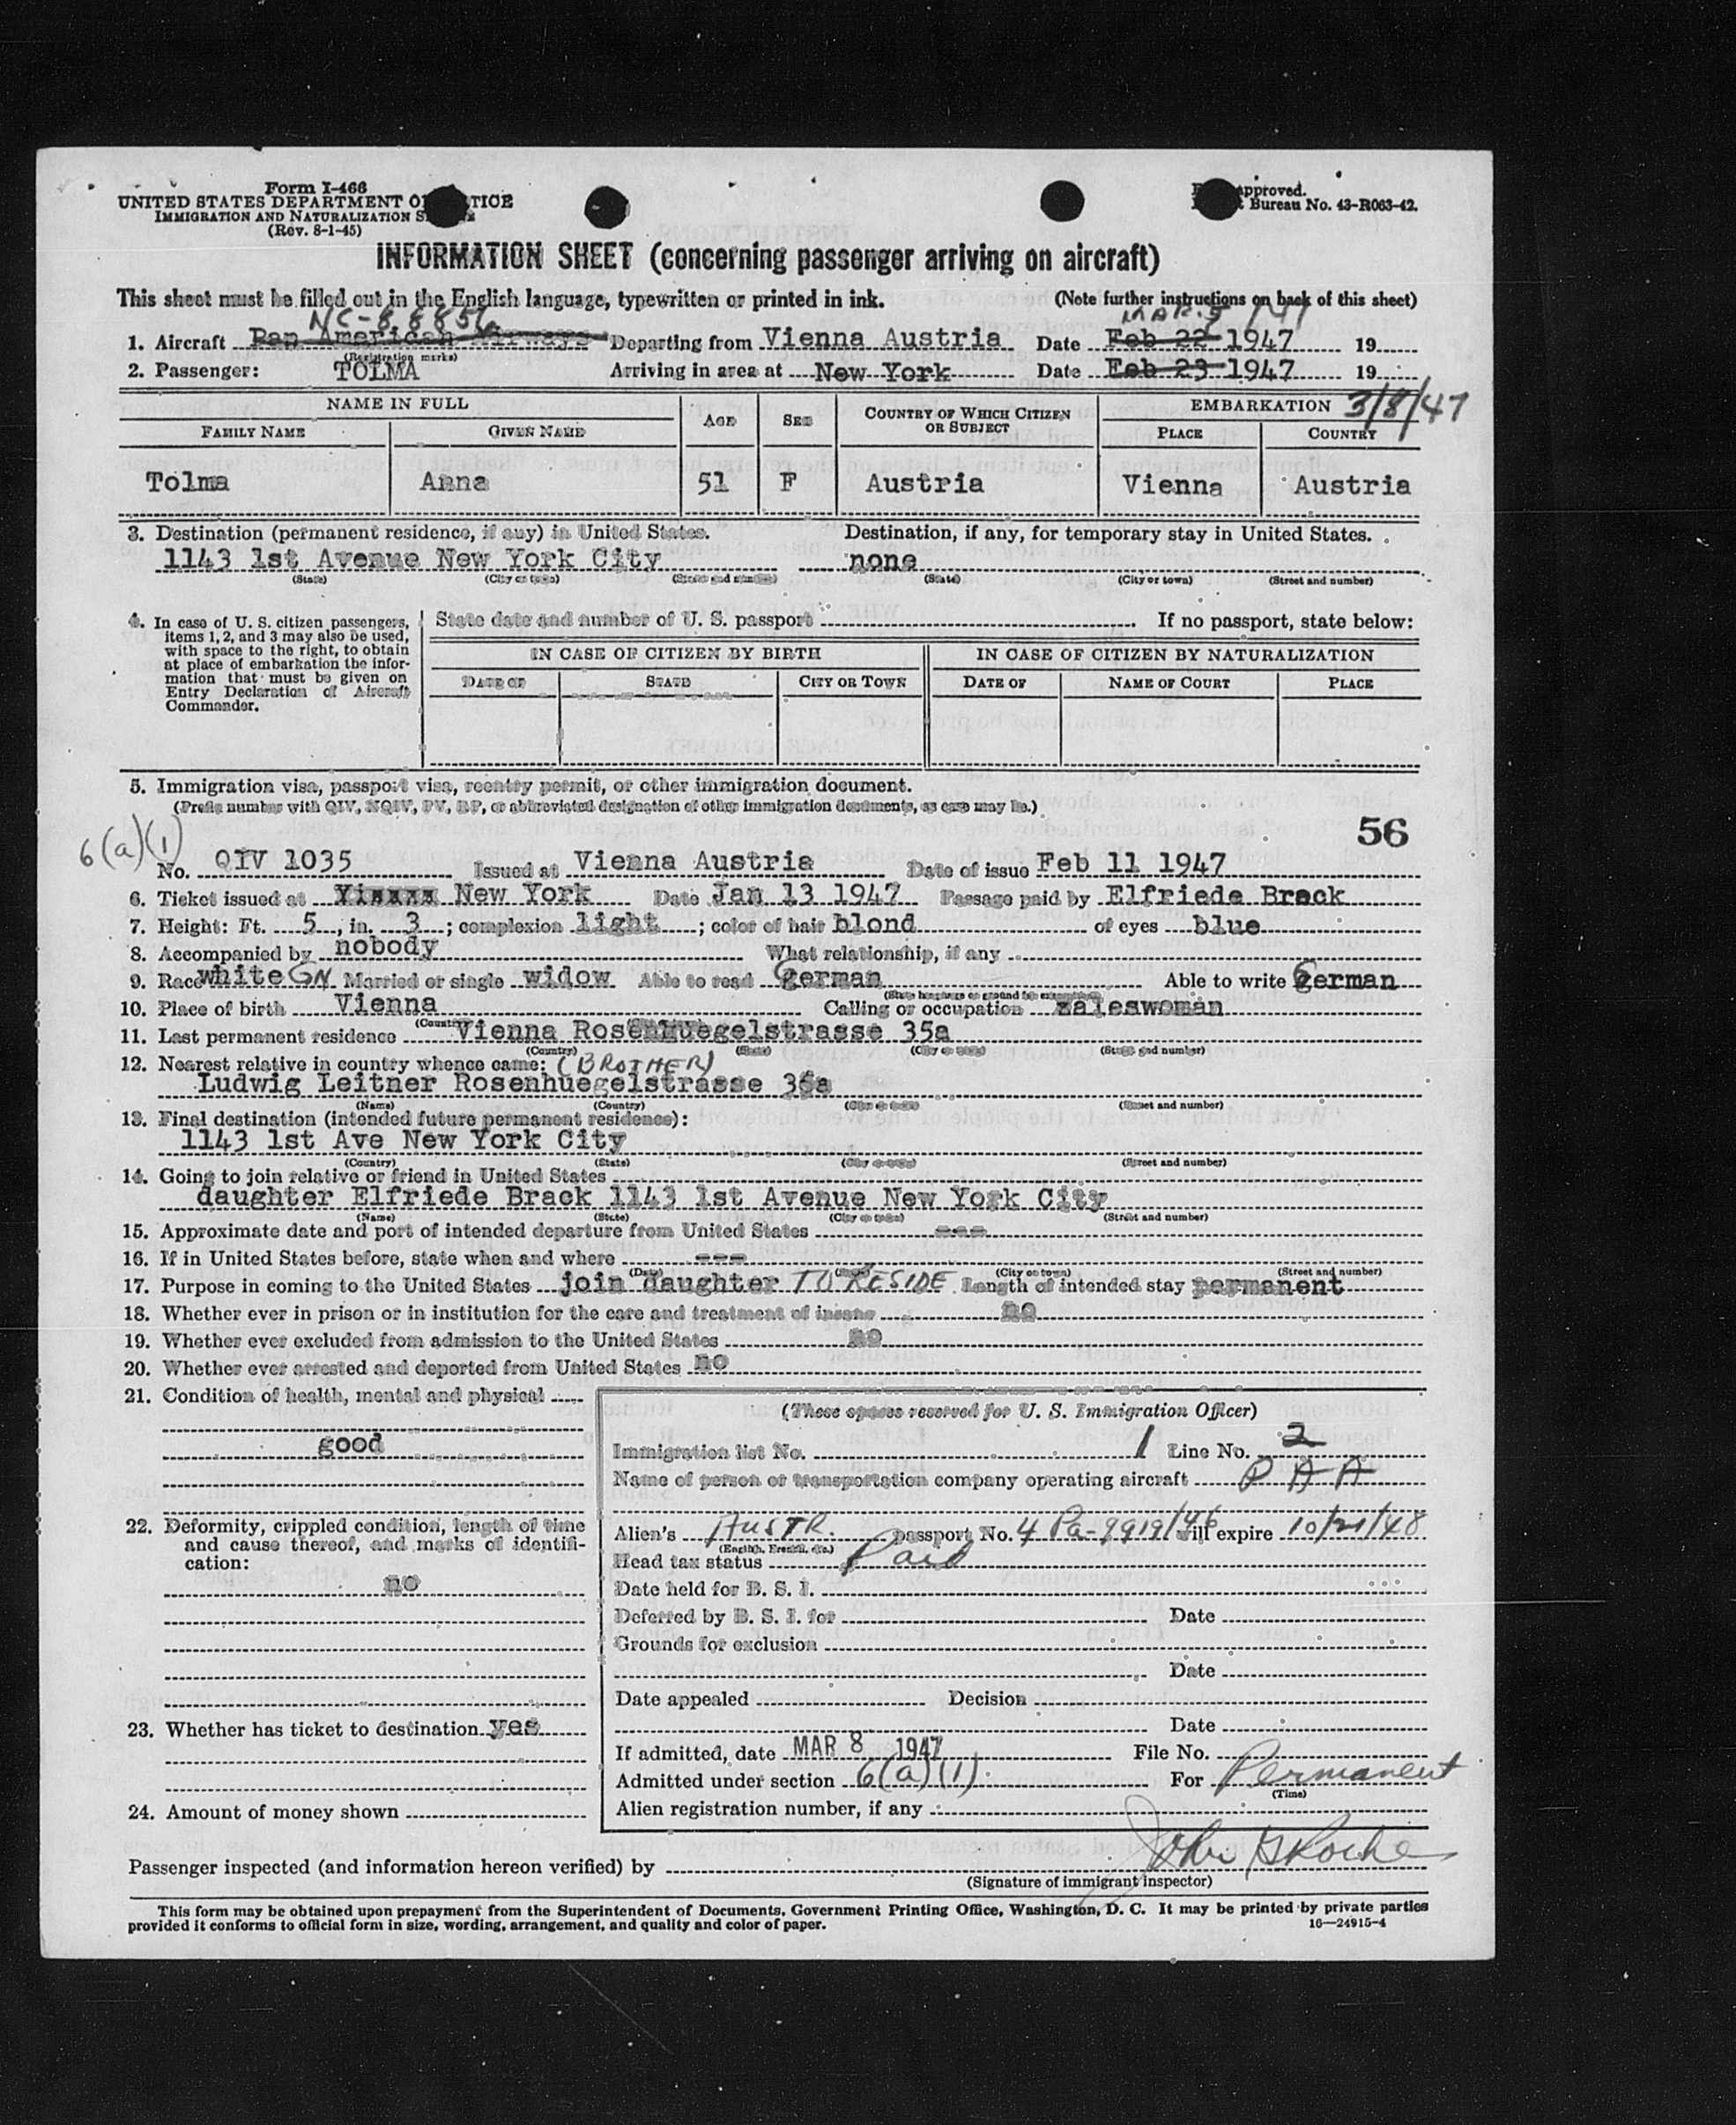 Form I-466
UNITED STATES DEPARTMENT OF JUSTICE
IMMIGRATION AND NATURALIZATION SERVICE
(Rev. 8-1-45)
approved.
Bureau No. 43-R063-42.
INFORMATION SHEET (concerning passenger arriving on aircraft)
This sheet must be filled out in the English language, typewritten or printed in ink. (Note further instructions on back of this sheet)
NC-88856 MAR. 5 1947
1. Aircraft Pan American Airways Departing from Vienna Austria Date Feb 22 1947 19
(Registration marks)
2. Passenger: TOLMA Arriving in area at New York Date Feb 23 1947 19
NAME IN FULL AGE SEX COUNTRY OF WHICH CITIZEN OR SUBJECT EMBARKATION 3/8/47
FAMILY NAME GIVEN NAME PLACE COUNTRY
Tolma Anna 51 F Austria Vienna Austria
3. Destination (permanent residence, if any) in United States. Destination, if any, for temporary stay in United States.
1143 1st Avenue New York City none
(State) (City or town) (Street and number) (State) (City or town) (Street and number)
4. In case of U. S. citizen passengers,
items 1, 2, and 3 may also be used,
with space to the right, to obtain
at place of embarkation the infor-
mation that must be given on
Entry Declaration of Aircraft
Commander.
State date and number of U. S. passport If no passport, state below:
IN CASE OF CITIZEN BY BIRTH IN CASE OF CITIZEN BY NATURALIZATION
DATE OF STATE CITY OR TOWN DATE OF NAME OF COURT PLACE
5. Immigration visa, passport visa, reentry permit, or other immigration document.
(Prefix number with QIV, NQIV, PV, RP, or abbreviated designation of other immigration documents, as case may be.)
56
6(a)(1)
No. QIV 1035 Issued at Vienna Austria Date of issue Feb 11 1947
6. Ticket issued at New York Date Jan 13 1947 Passage paid by Elfriede Brack
7. Height: Ft. 5, in. 3; complexion light; color of hair blond of eyes blue
8. Accompanied by nobody What relationship, if any
9. Race white GN Married or single widow Able to read German Able to write German
10. Place of birth Vienna Calling or occupation saleswoman
(Country)
11. Last permanent residence Vienna Rosenhuegelstrasse 35a
(Country) (State) (City or town) (Street and number)
12. Nearest relative in country whence came: (BROTHER)
Ludwig Leitner Rosenhuegelstrasse 35a
(Name) (Country) (City or town) (Street and number)
13. Final destination (intended future permanent residence):
1143 1st Ave New York City
(Country) (State) (City or town) (Street and number)
14. Going to join relative or friend in United States
daughter Elfriede Brack 1143 1st Avenue New York City
(Name) (State) (City or town) (Street and number)
15. Approximate date and port of intended departure from United States ---
16. If in United States before, state when and where ---
(Date) (State) (City or town) (Street and number)
17. Purpose in coming to the United States join daughter TO RESIDE Length of intended stay permanent
18. Whether ever in prison or in institution for the care and treatment of insane no
19. Whether ever excluded from admission to the United States no
20. Whether ever arrested and deported from United States no
21. Condition of health, mental and physical
good
22. Deformity, crippled condition, length of time
and cause thereof, and marks of identifi-
cation:
no
23. Whether has ticket to destination yes
24. Amount of money shown
(These spaces reserved for U. S. Immigration Officer)
Immigration list No. 1 Line No. 2
Name of person or transportation company operating aircraft P A A
Alien's AUSTR. passport No. 4 Pa-9919/46 will expire 10/21/48
(English, French, etc.)
Head tax status Paid
Date held for B. S. I.
Deferred by B. S. I. for Date
Grounds for exclusion
Date
Date appealed Decision
Date
If admitted, date MAR 8 1947 File No.
Admitted under section 6(a)(1) For Permanent
(Time)
Alien registration number, if any
Passenger inspected (and information hereon verified) by John G Roche
(Signature of immigrant inspector)
This form may be obtained upon prepayment from the Superintendent of Documents, Government Printing Office, Washington, D. C. It may be printed by private parties
provided it conforms to official form in size, wording, arrangement, and quality and color of paper. 16—24915-4